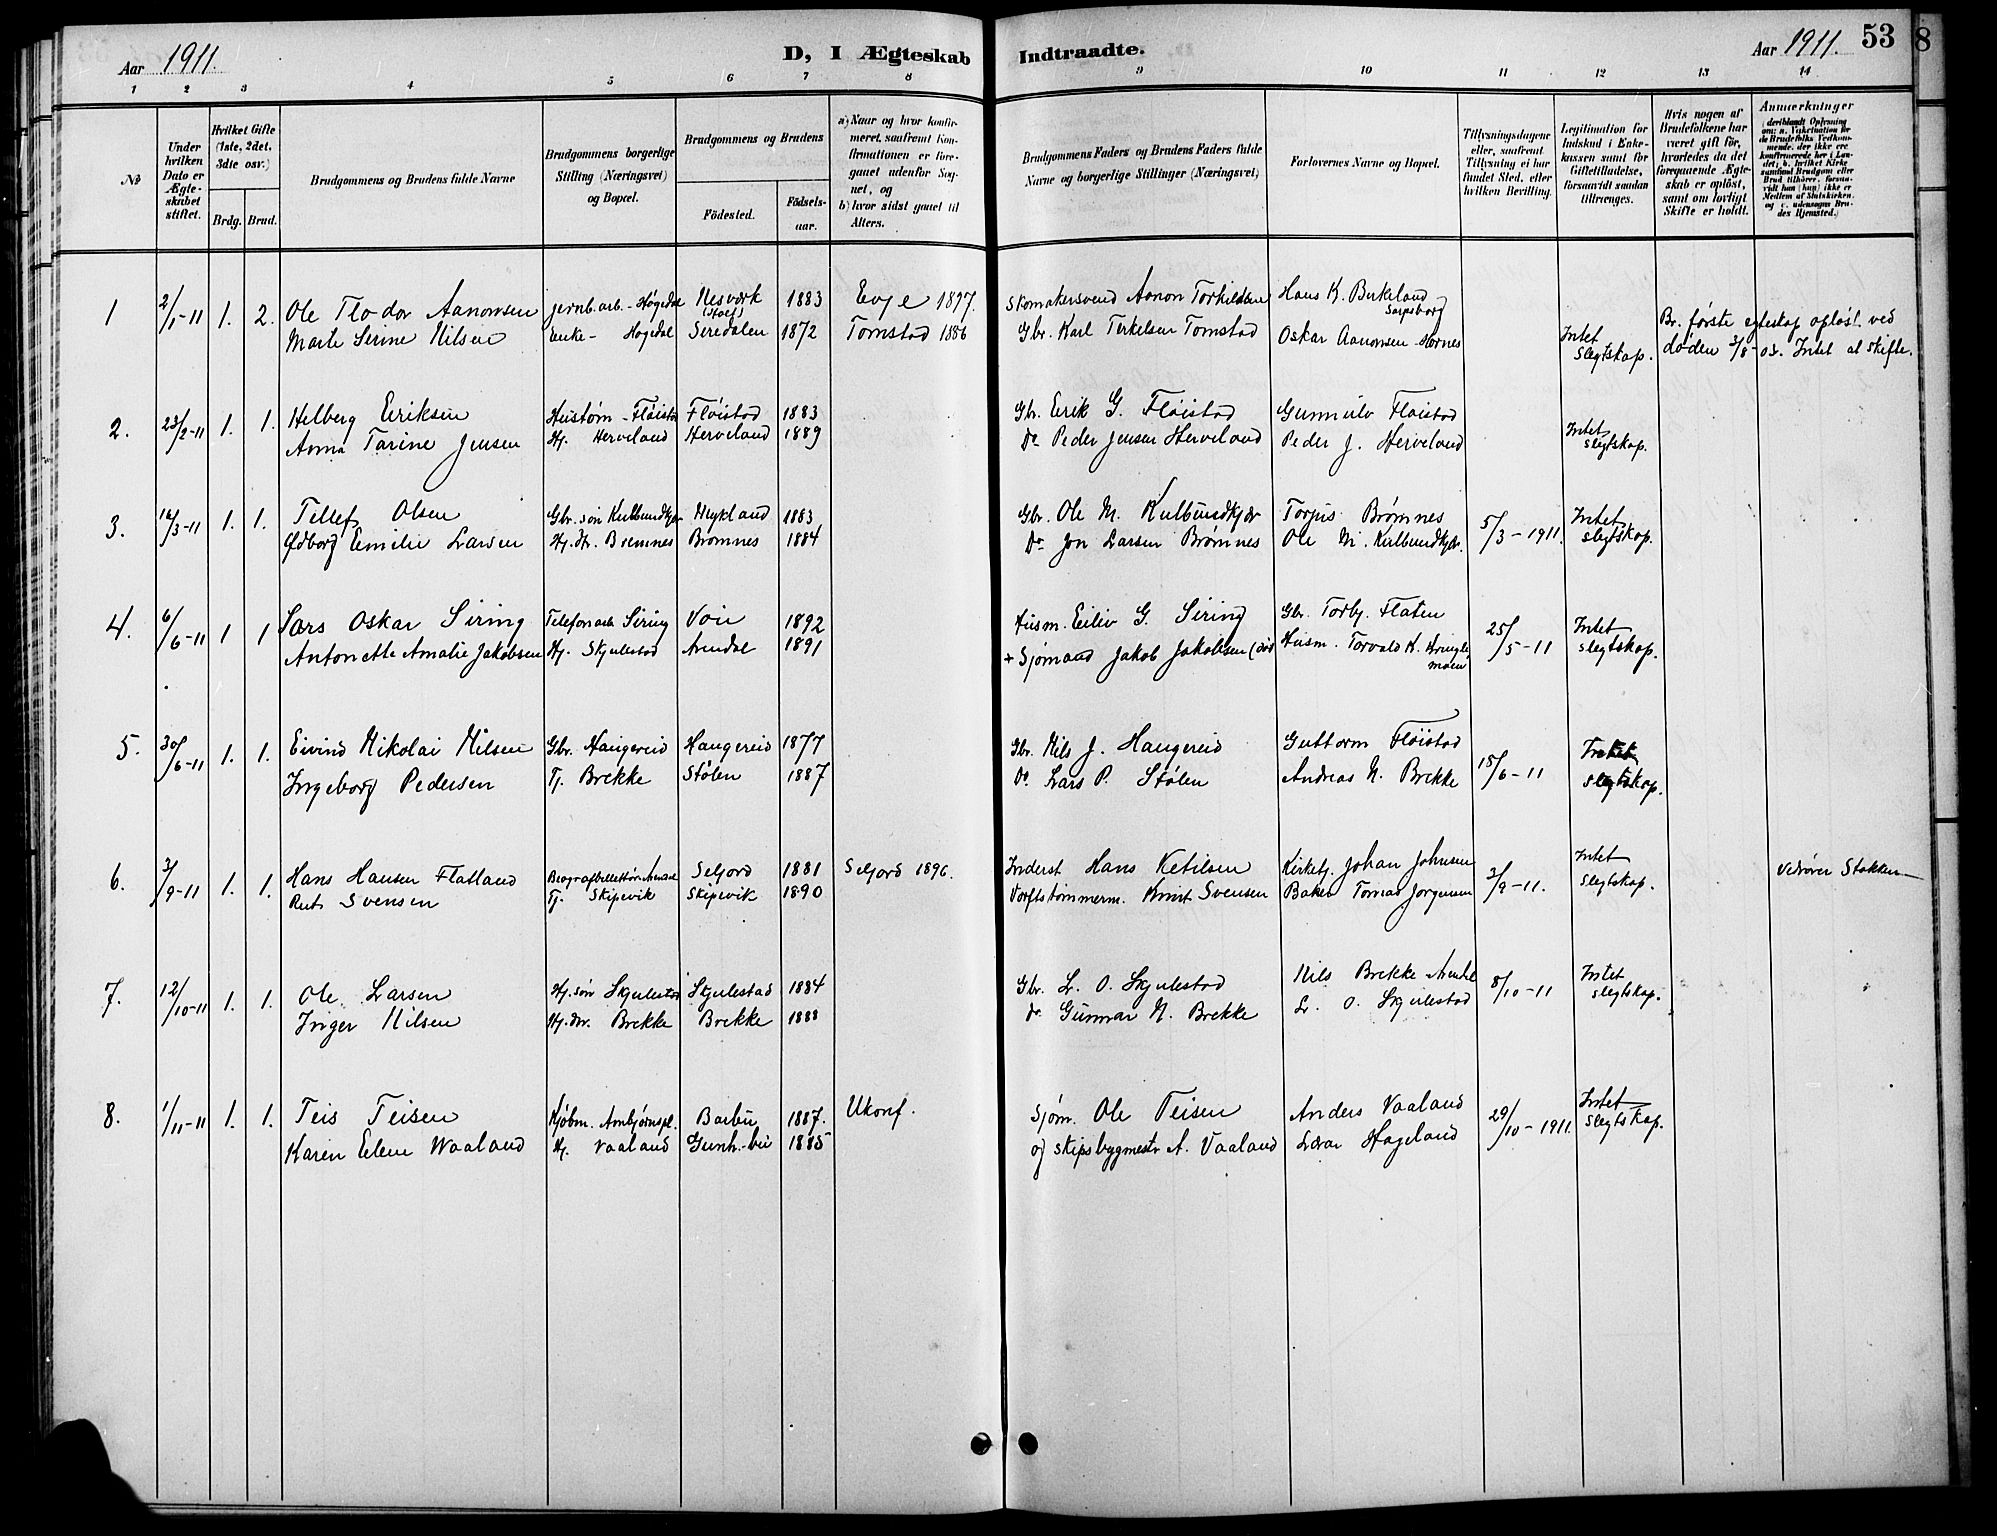 Aar 1911.
D, I Ægteskab Indtraadte.
Aar 1911. 53
8
1 2 3 4 5 6 7 8 9 10 11 12 13 14
№
Under hvilken Dato er Ægteskabet stiftet.
Hvilket Gifte (1ste, 2det, 3die osv.)
Brdg. Brud.
Brudgommens og Brudens fulde Navne
Brudgommens borgerlige Stilling (Næringsvei) og Bopæl.
Brudgommens og Brudens
Födested. Födsels-aar.
a) Naar og hvor konfirmeret, saafremt Konfirmationen er foregaaet udenfor Sognet, og
b) hvor sidst gaaet til Alters.
Brudgommens Faders og Brudens Faders fulde Navne og borgerlige Stillinger (Næringsvei)
Forlovernes Navne og Bopæl.
Tillysningsdagene eller, saafremt Tillysning ei har fundet Sted, efter hvilken Bevilling.
Legitimation for Indskud i Enkekassen samt for Giftetilladelse, forsaavidt saadan tiltrænges.
Hvis nogen af Brudefolkene har været gift før, hvorledes da det foregaaende Ægteskab er opløst, samt om lovligt Skifte er holdt.
Anmærkninger
(deriblandt Oplysning om: a. Vakcination for de Brudefolks Vedkommende, der ikke ere konfirmerede her i Landet; b. hvilket Kirkesamfund Brudgom eller Brud tilhører, forsaavidt han (hun) ikke er Medlem af Statskirken, og c. udensogns Brudes Hjemsted.)
1 2/1-11 1. 2. Ole Teodor Aanonsen jernb.arb. - Høgedal Nesværk (Stoef) 1883 Evje 1897. Skomakersvend Aanon Torkildsen Hans K. Birkeland Sarpsborg
Marte Serine Nilsen Enke - Høgedal Siredalen 1872 Tomstad 1886 Gbr. Karl Terkelsen Tomstad Oskar Aanonsen - Hornes Intet slegtskap. Br. første egteskap opløst ved døden 3/8-03. Intet at skifte.
2. 23/2-11 1. 1. Helberg Eriksen Hustøm - Fløistad Fløistad 1883 Gbr. Erik G. Fløistad Gunnulv Fløistad
Anna Tarine Jensen Hj. Herveland Herveland 1889 Do Peder Jensen Herveland Peder J. Herveland Intet slegtskap.
3. 16/3-11 1. 1. Tellef Olsen Gbr. søn Kulbundkjær Mykland 1883 Gbr. Ole M. Kulbundkjær Torjus Brømnes 5/3-1911. Intet slegtskap.
Ødborg Emilie Larsen Hj. dr. Bremnes Brømnes 1884 Do Jon Larsen Brømnes Ole M. Kulbundkjær.
4. 6/6-11 1 1 Lars Oskar Siring Telefonarb Siring Voie 1892 Husm. Eiliv G. Siring Gbr. Torbj. Flaten 25/5-11 Intet slegtskap.
Antonette Amalie Jakobsen Hj. Skjulestad Arendal 1891 + Sjømand Jakob Jakobsen (død Husm. Torvald K. Kringlemoen
5. 30/6-11 1. 1. Eivind Nikolai Nilsen Gbr. Haugereid Haugereid 1877 Gbr. Nils J. Haugereid Guttorm Fløistad 18/6-11 Intet slegtskap.
Ingeborg Pedersen Tj. Brekke Stølen 1887 Do Lars P. Stølen Andreas N. Brekke
6. 3/9-11 1. 1. Hans Hansen Flatland Biografbillettør Arendal Seljord 1881 Seljord 1896. Inderst Hans Ketilsen Kirketj. Johan Johnsen 3/9-11. Intet slegtskap. Vedrører Stokken
Rut Svensen Tj. Skipevik Skipevik 1890 Verftstømmerm. Knut Svensen Baker Tomas Jorgensen
7. 12/10-11 1. 1. Ole Larsen Hj. søn Skjulestad Skjulestad 1884 Gbr. L. O. Skjulestad Nils Brekke - Arendal 8/10-11 Intet slegtskap.
Inger Nilsen Hj. dr. Brekke Brekke 1888 Do Gunnar N. Brekke L. O. Skjulestad
8. 1/11-11 1. 1. Teis Teisen Kjøbm. Arnbjørnspl. Barbu 1887. Ukonf. Sjøm. Ole Teisen Anders Vaaland 29/10-1911. Intet slegtskap.
Karen Elene Waaland Hj. Vaaland Gunh.-bu 1885 og skipsbygmestr A. Vaaland Lavar Hageland